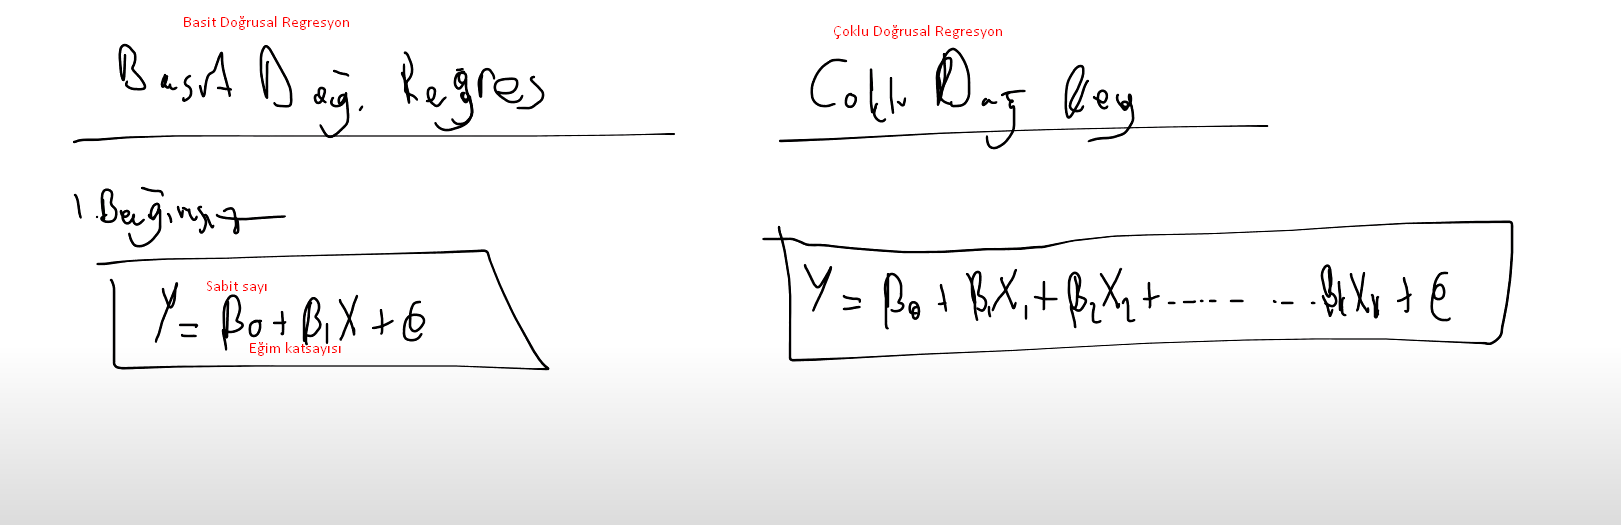 Basit Doğrusal Regresyon
Basit Doğ. Regres
1 Bağımsız
Sabit sayı
Y = β0 + β1X + e
Eğim katsayısı
Çoklu Doğrusal Regresyon
Coklu Doğ Reg
Y = β0 + β1X1 + β2X2 + ........ βkXk + e